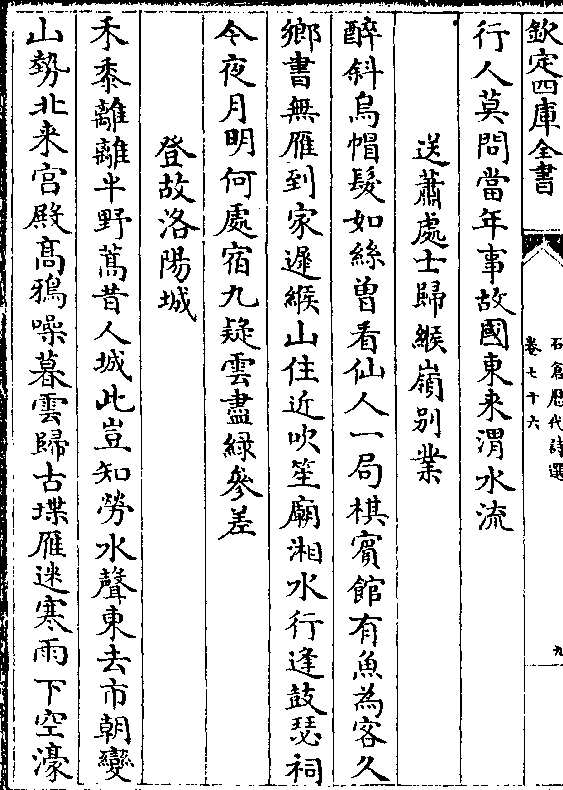 欽定四庫全書
石倉歷代詩選
卷七十六
九
行人莫問當年事故國東来渭水流
送蕭處士歸緱嶺别業
醉斜烏帽髪如絲曽看仙人一局棋賓館有魚為客久
鄉書無雁到家遲緱山住近吹笙廟湘水行逢鼓瑟祠
今夜月明何處宿九疑雲盡緑參差
登故洛陽城
禾黍離離半野蒿昔人城此豈知勞水聲東去市朝變
山勢北来宫殿髙鴉噪暮雲歸古堞雁迷寒雨下空濠